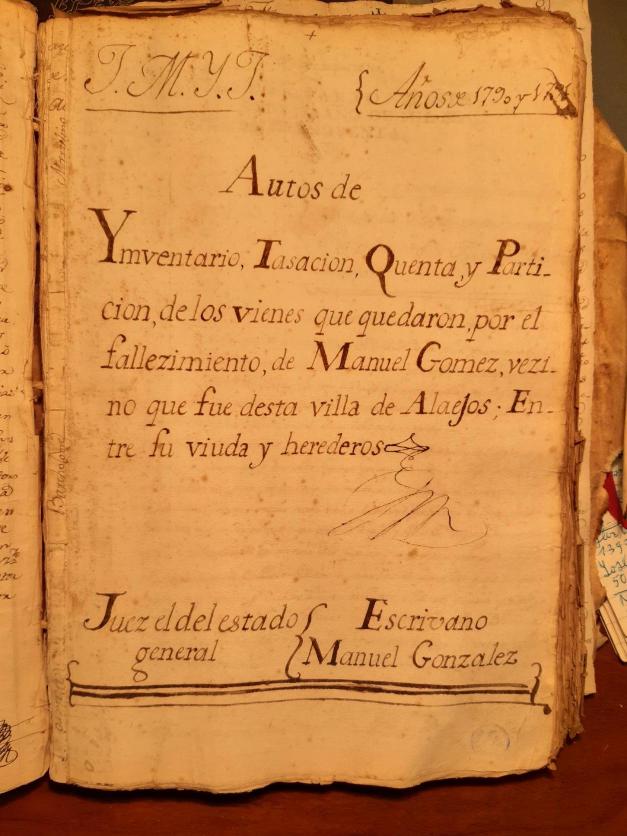 J. M. Y. J.
Años de 1790 y
Autos de
Ymventario, Tasacion, Quenta, y Parti-
cion, de los vienes que quedaron, por el
fallezimiento, de Manuel Gomez, vezi-
no que fue desta villa de Alaejos; En-
tre su viuda y herederos
Juez el del estado
general
Escrivano
Manuel Gonzalez